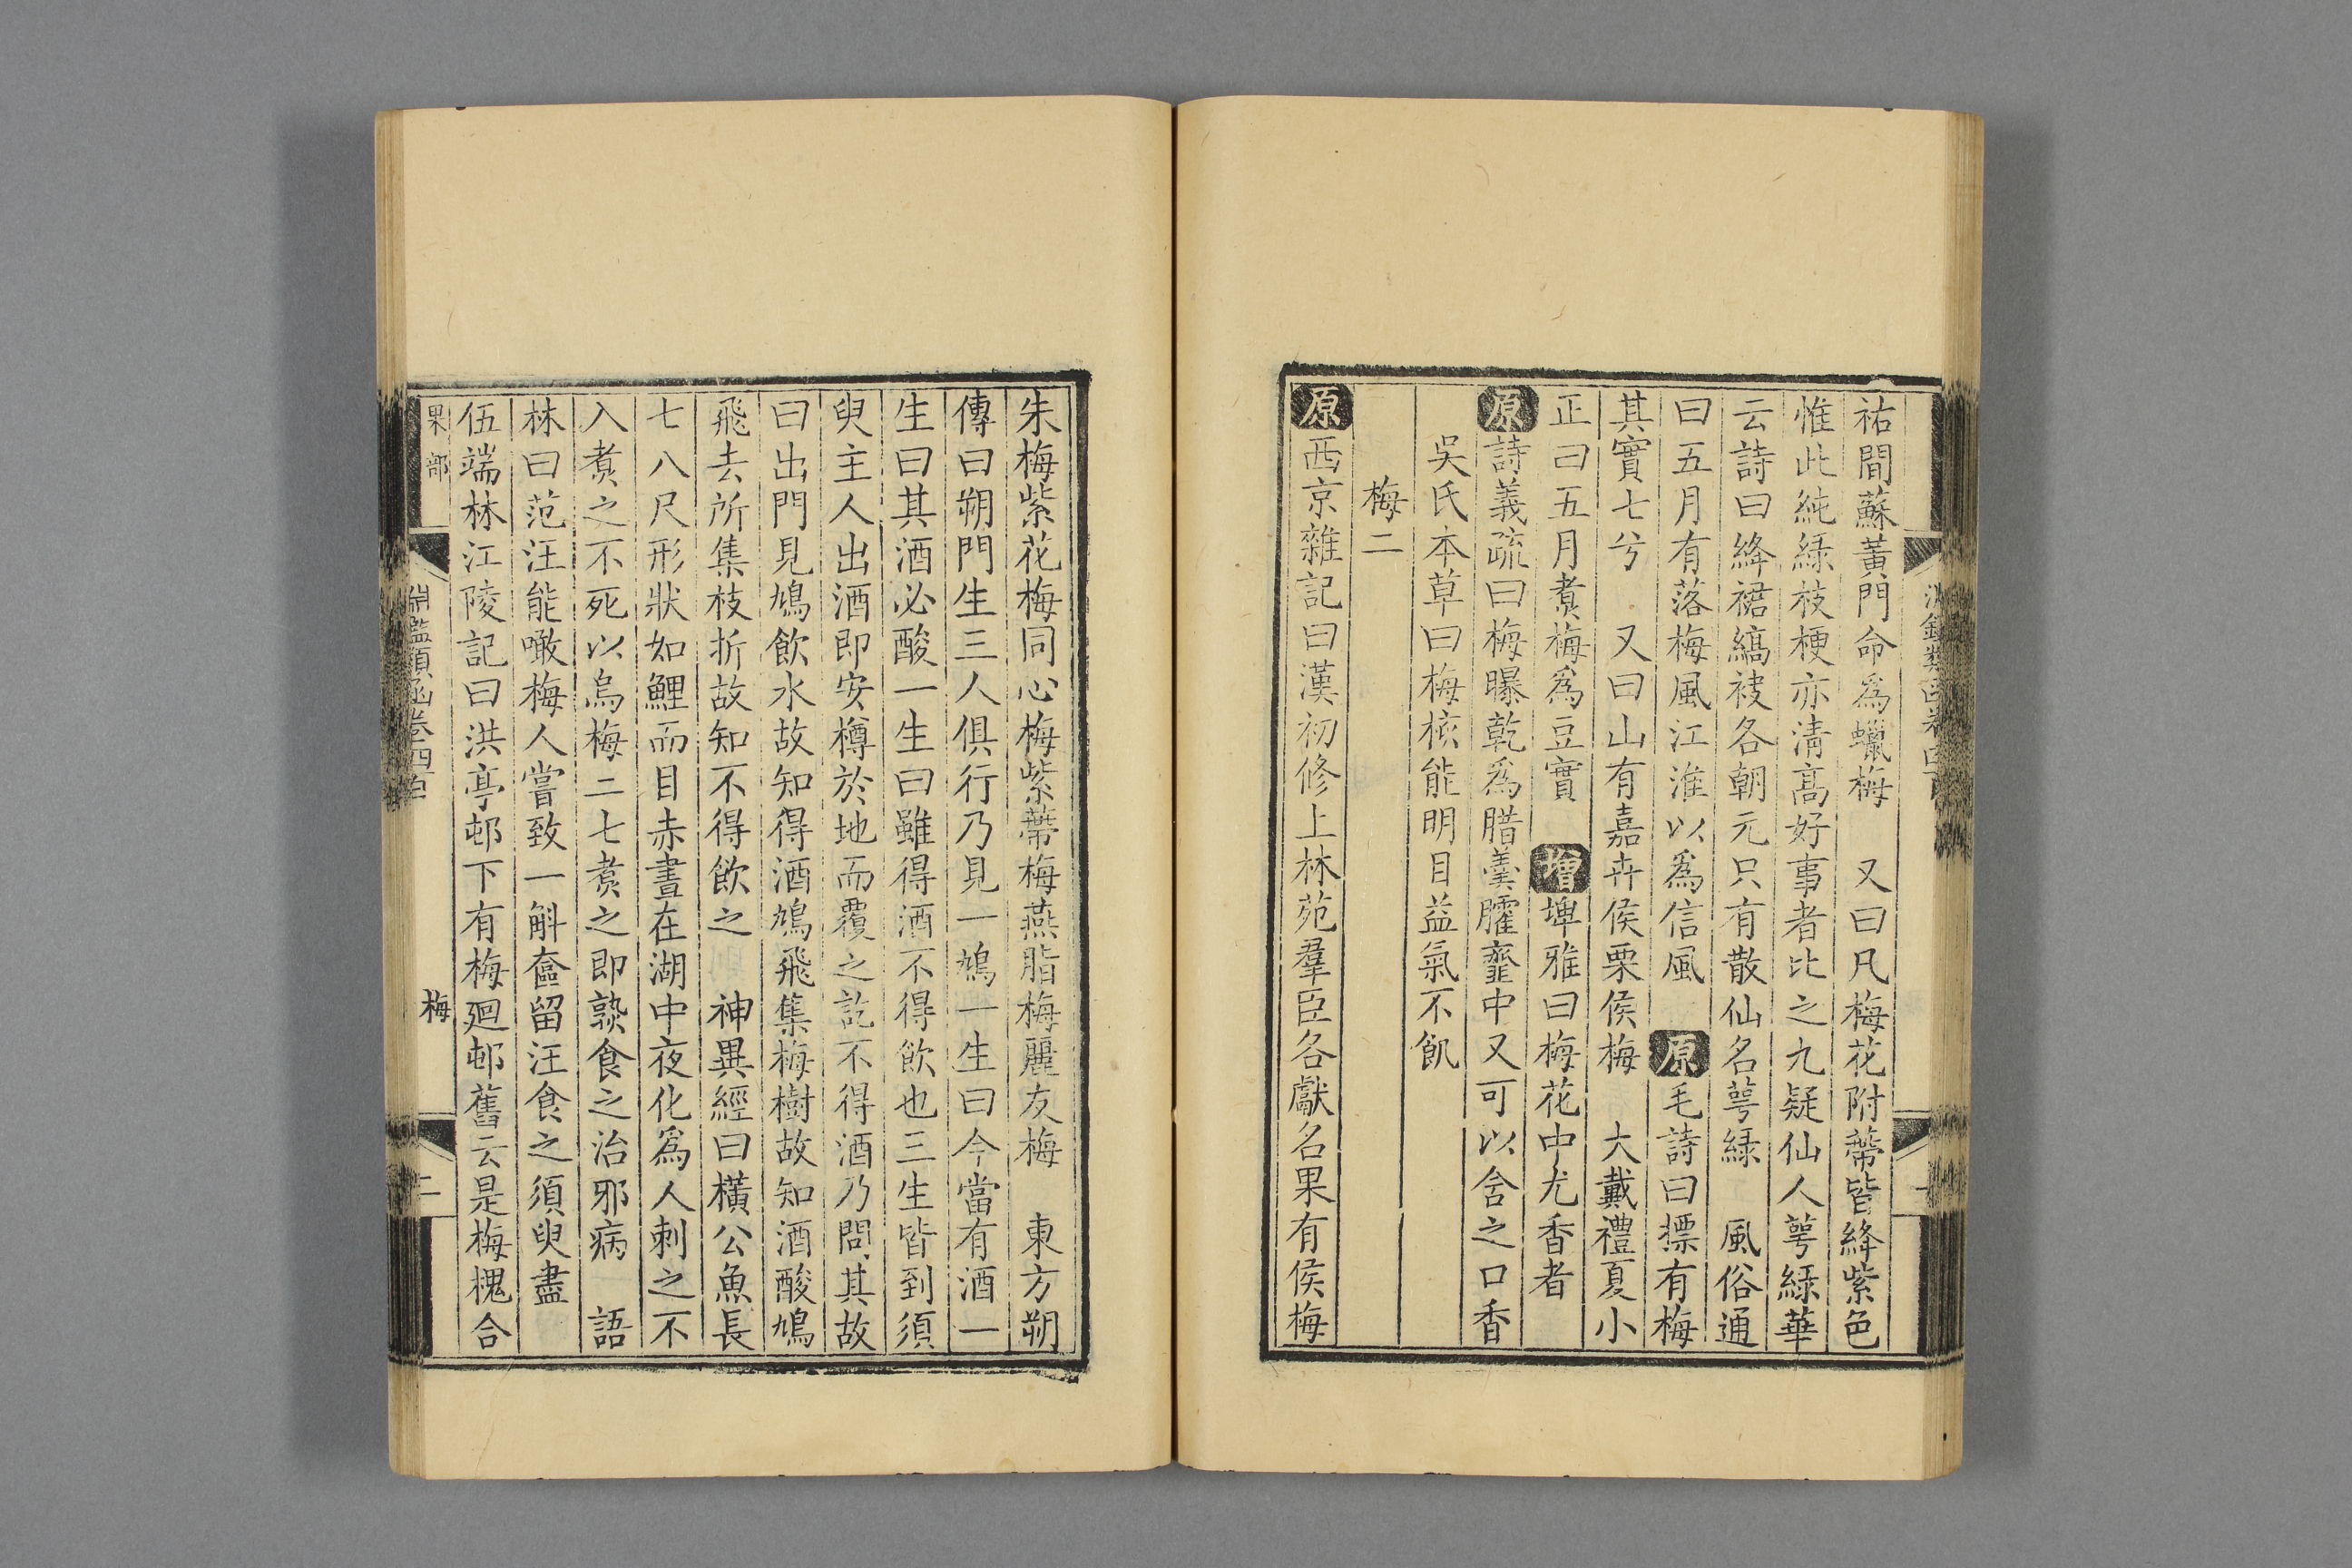 祐間蘇黃門命爲蠟梅　又曰凡梅花附蔕皆絳紫色
惟此純綠枝梗亦清高好事者比之九疑仙人萼綠華
云詩曰絳裙縞袂各朝元只有散仙名萼綠　風俗通
曰五月有落梅風江淮以爲信風　原毛詩曰摽有梅
其實七兮　又曰山有嘉卉侯栗侯梅　大戴禮夏小
正曰五月煮梅爲豆實　增埤雅曰梅花中尤香者
原詩義疏曰梅曝乾爲腊羹臛虀中又可以含之口香
吳氏本草曰梅核能明目益氣不飢
梅二
原西京雜記曰漢初修上林苑羣臣各獻名果有侯梅
朱梅紫花梅同心梅紫蔕梅燕脂梅麗友梅　東方朔
傳曰朔門生三人俱行乃見一鳩一生曰今當有酒一
生曰其酒必酸一生曰雖得酒不得飲也三生皆到須
臾主人出酒即安樽於地而覆之訖不得酒乃問其故
曰出門見鳩飲水故知得酒鳩飛集梅樹故知酒酸鳩
飛去所集枝折故知不得飲之　神異經曰橫公魚長
七八尺形狀如鯉而目赤晝在湖中夜化爲人刺之不
入煮之不死以烏梅二七煮之即熟食之治邪病　語
林曰范汪能噉梅人嘗致一斛奩留汪食之須臾盡
伍端林江陵記曰洪亭邨下有梅廻邨舊云是梅槐合
果部
淵鑑類函卷四百
梅
二